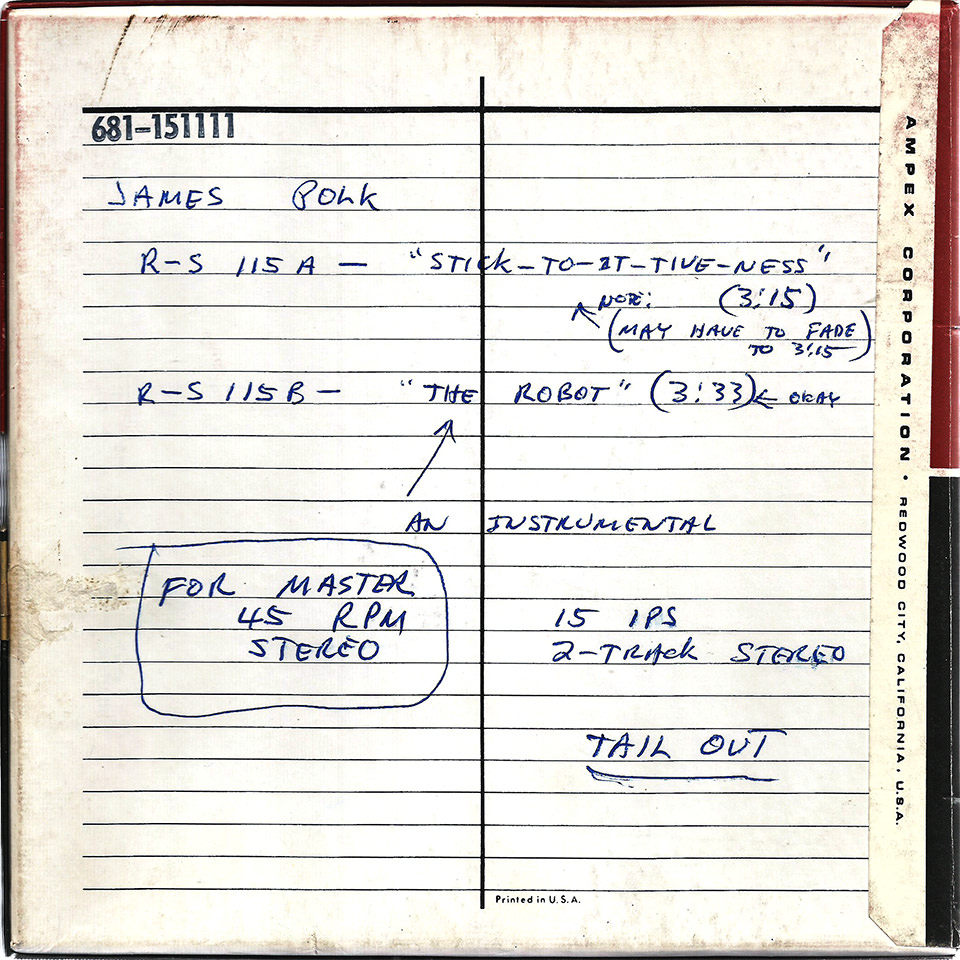 681-151111
JAMES POLK
R-S 115 A — "STICK-TO-IT-TIVE-NESS"
NOTE: (3:15)
(MAY HAVE TO FADE
TO 3:15)
R-S 115 B — "THE ROBOT" (3:33) ← OKAY
AN INSTRUMENTAL
FOR MASTER
45 RPM
STEREO
15 IPS
2-TRACK STEREO
TAIL OUT
Printed in U.S.A.
AMPEX CORPORATION • REDWOOD CITY, CALIFORNIA, U.S.A.